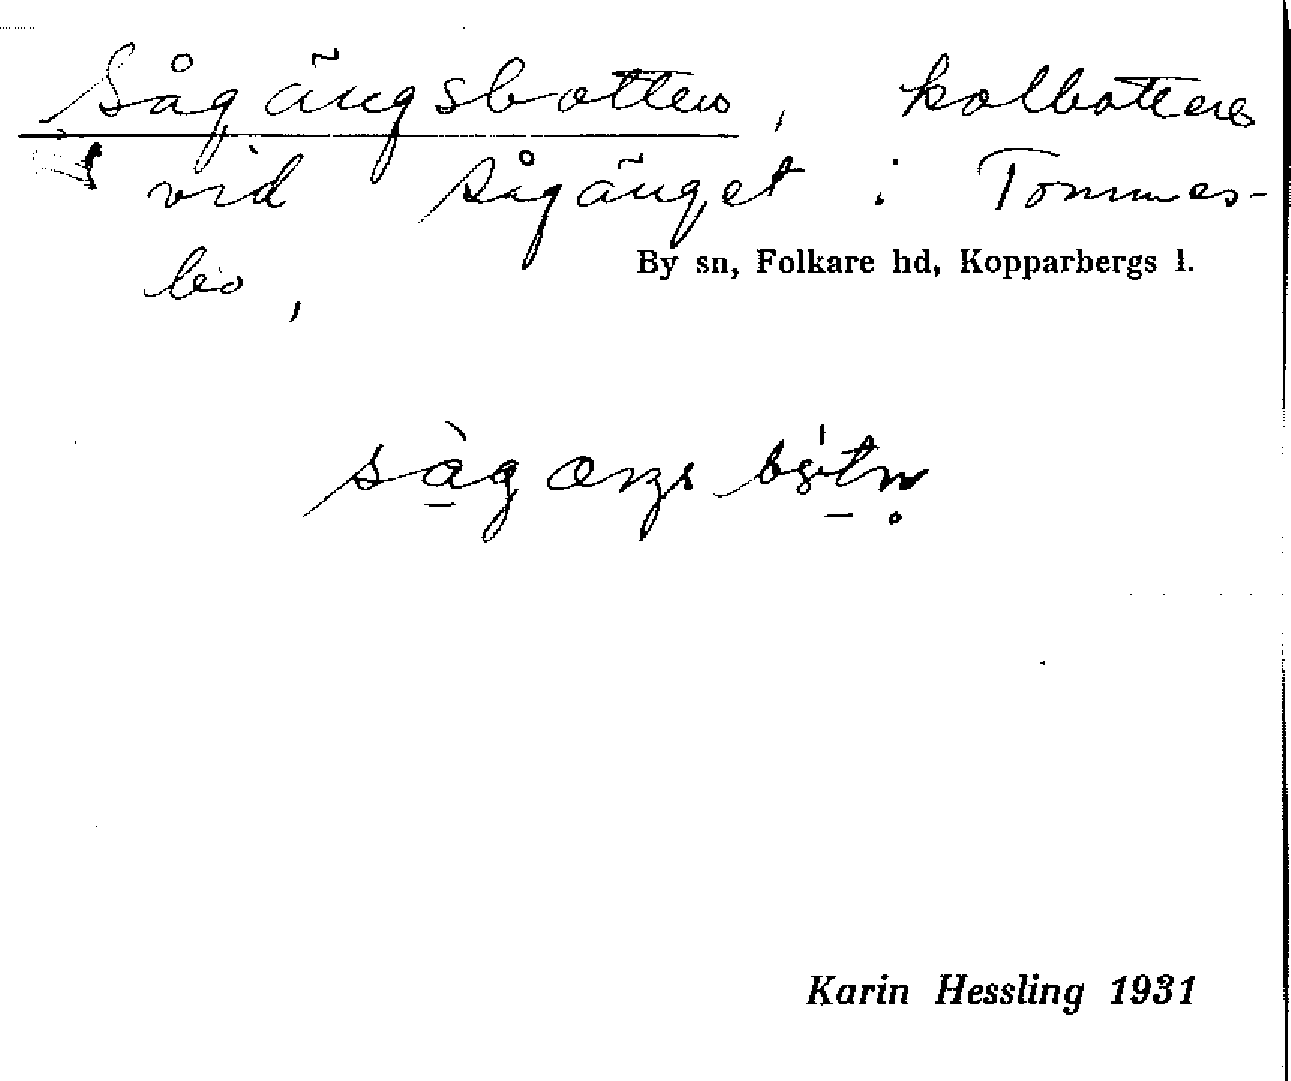 Sågängsbotten, kolbotten
vid Sågänget i Tommes-
bo,
By sn, Folkare hd, Kopparbergs l.
Karin Hessling 1931